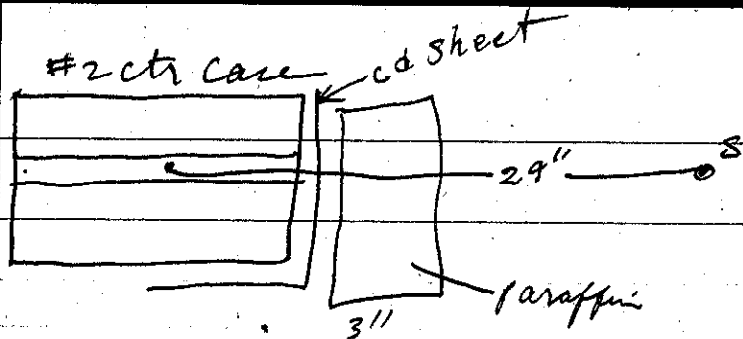 #2 ctr Case
cd Sheet
29"
S
paraffin
3"